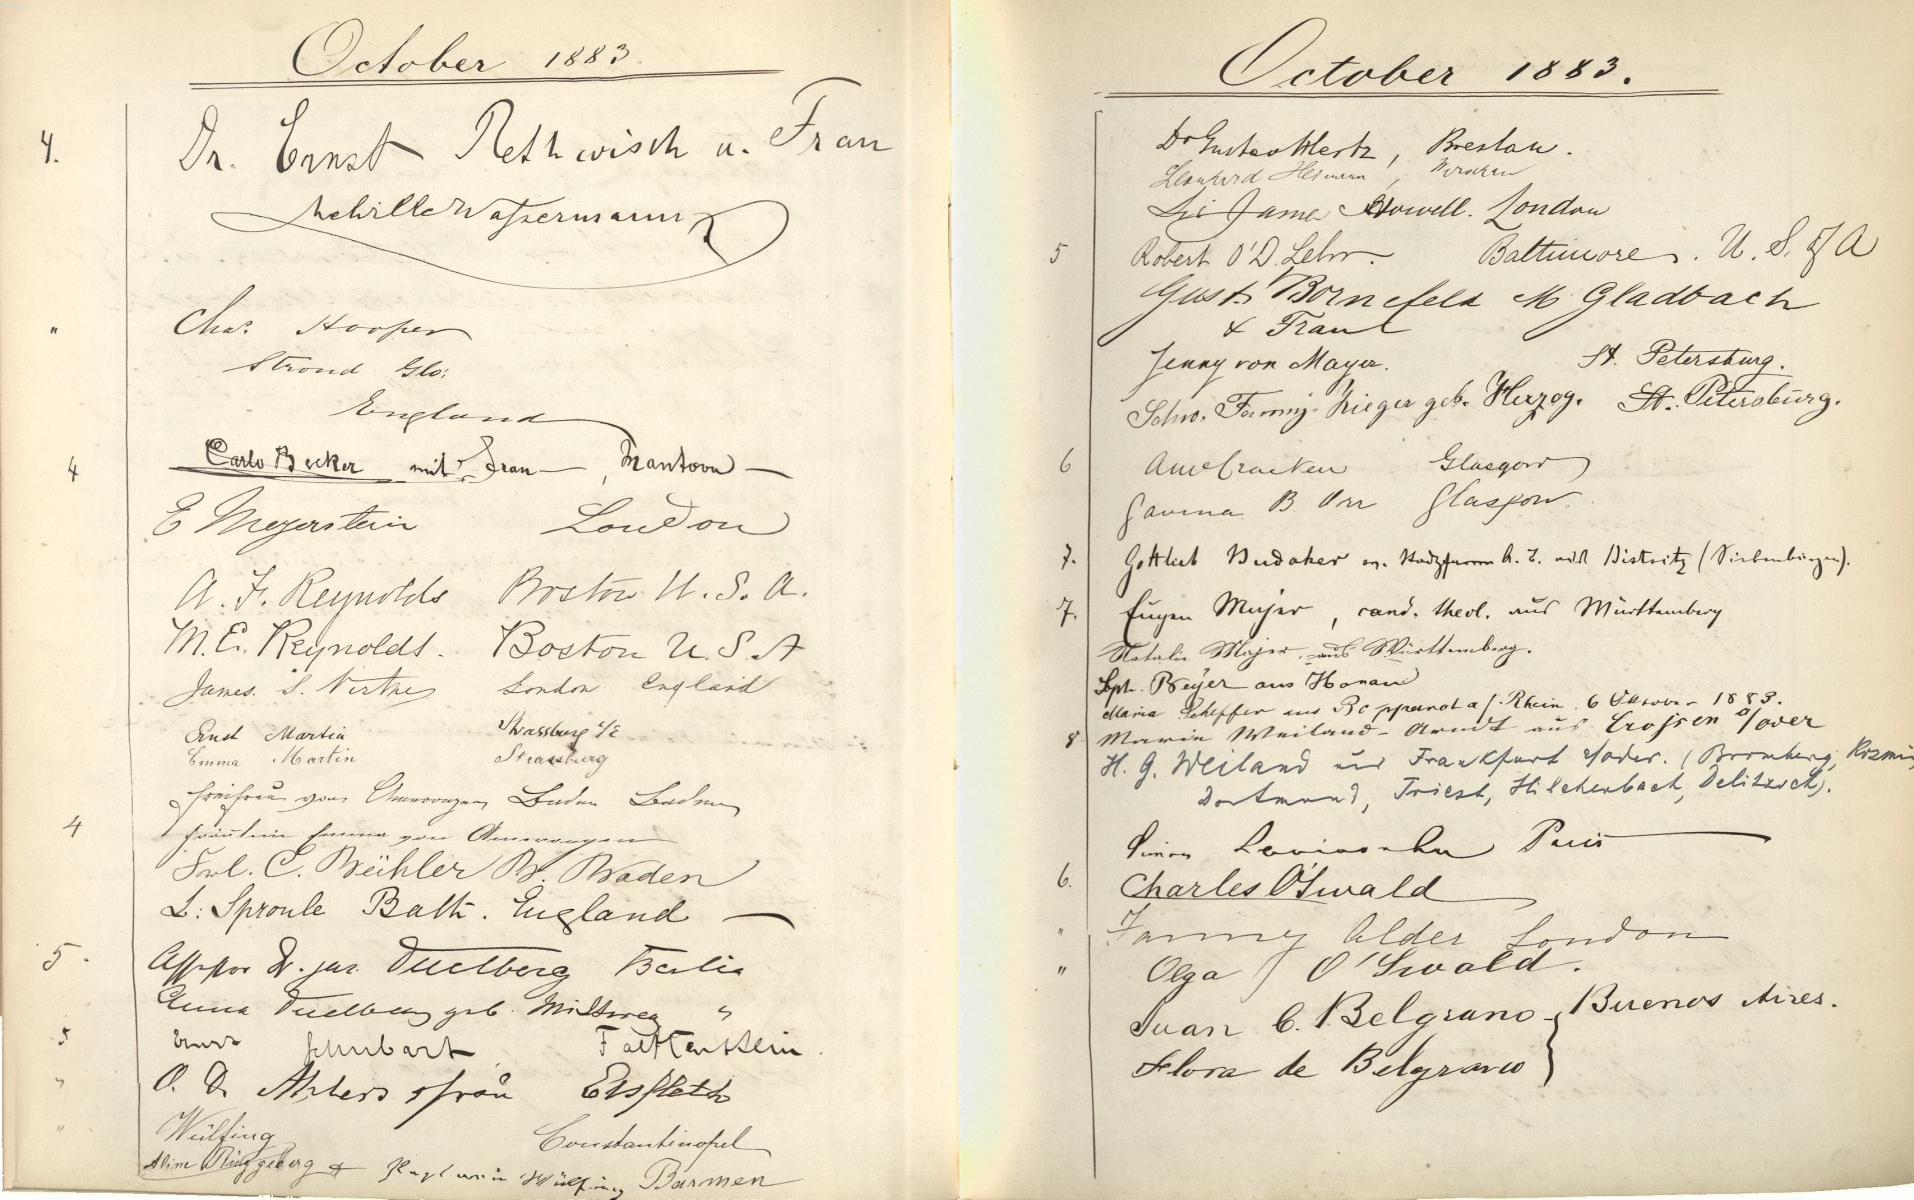 October 1883.
4. Dr. Ernst Rethwisch u. Frau
Achille Wassermann
" Chas. Hooper
Stroud Glo:
England
4 Carlo Becker mit Frau, Mantova
E Meyerstein London
A. F. Reynolds Boston U. S. A.
M. E. Reynolds. Boston U. S. A
James. S. Virtue London England
Ernst Martin Strassburg i/E
Emma Martin Strassburg
Freifrau von Baden Baden
4 Fräulein Emma von
Frl. C. Bühler B. Baden
L: Sproule Bath. England
5. Assessor Dr. jur. Berlin
geb. "
5 Schubart Falkenstein.
" O. D. Ahlers & Frau Elsfleth
" Wülfing Constantinopel
Aline Ringgeberg & Wülfing Barmen
October 1883.
Dr Gustav Hertz, Breslau.
Leonhard Heimann,
Sir James London
5 Robert O'D. Lehr. Baltimore. U. S. of A
Gust. Bornefeld M Gladbach
& Frau
Jenny von Mayer. St. Petersburg.
Fanny Krieger geb. Herzog. St. Petersburg.
6 Glasgow
B Orr Glasgow.
7. Gottlieb Budaker Bistritz (Siebenbürgen).
7. Eugen Majer, cand. theol. aus Württemberg
Natalie Majer. aus Württemberg.
Soph. Beyer aus Honau
Maria Scheffer aus Boppard a/. Rhein. 6 October 1883.
8 Marie Weiland-Arndt aus Crossen a/oder
H. G. Weiland aus Frankfurt a/oder. (Bromberg,
Dortmund, Triest, Hilchenbach, Delitzsch).
Simon Paris
6. Charles O'Swald
" Fanny Alder London
" Olga O'Swald.
Juan C. Belgrano } Buenos Aires.
Flora de Belgrano